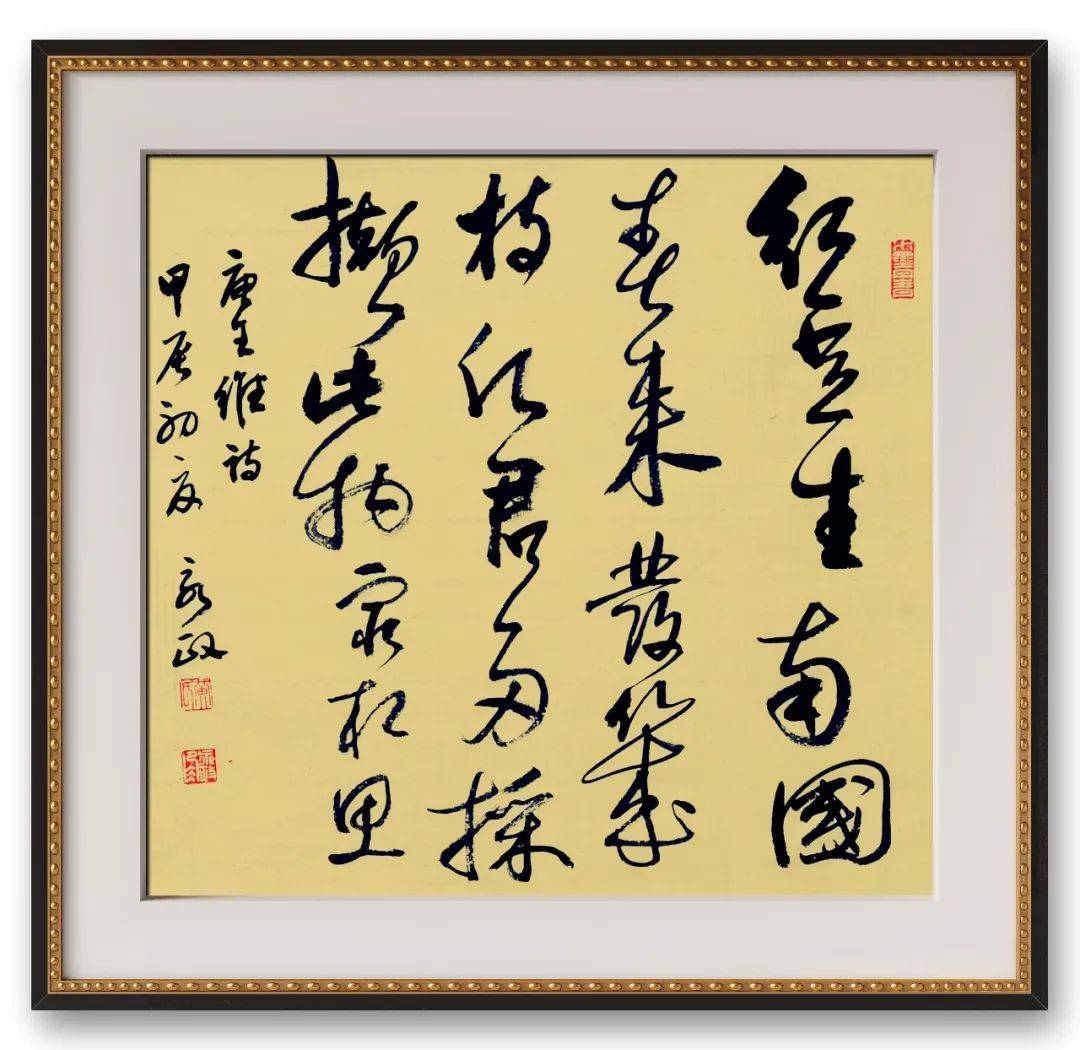 紅豆生南國
春来發幾
枝願君多採
擷此物最相思
唐王維詩
甲辰初夏